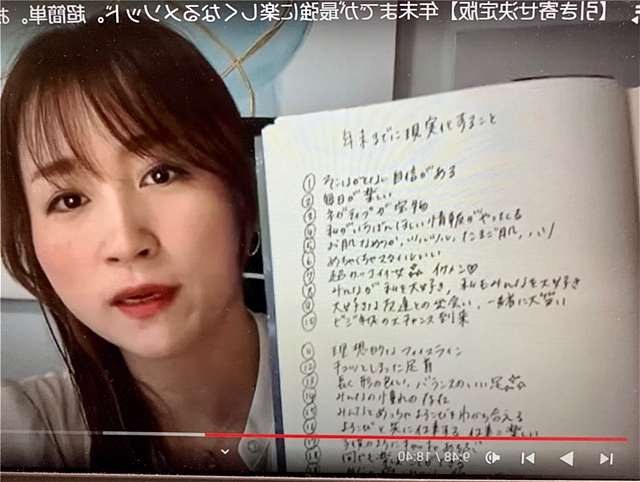 【引き寄せ決定版】年末までが最強に楽しくなるメソッド。超簡単。お
年末までに現実化すること
① そこはかとない自信がある
② 毎日が楽しい
③ ネガティブが宝物
④ 私がいちばんほしい情報がやってくる
⑤ お肌なめらか、ツルツル、たまご肌、ハリ
⑥ めちゃくちゃスタイルいい
⑦ 超カッコイイ彼氏 イケメン♡
⑧ みんなが私を大好き、私もみんなを大好き
⑨ 大好きな友達との出会い、一緒に大笑い
⑩ ビジネスのチャンス到来
⑪ 理想的なフェイスライン
⑫ キュッとしまった足首
⑬ 長く形の良い、バランスのいい足
⑭ みんなの憧れの存在
⑮ みんなとめっちゃよろこびをわかち合える
⑯ よろこびと共に仕事する 仕事に楽しい
9:48 / 18:40